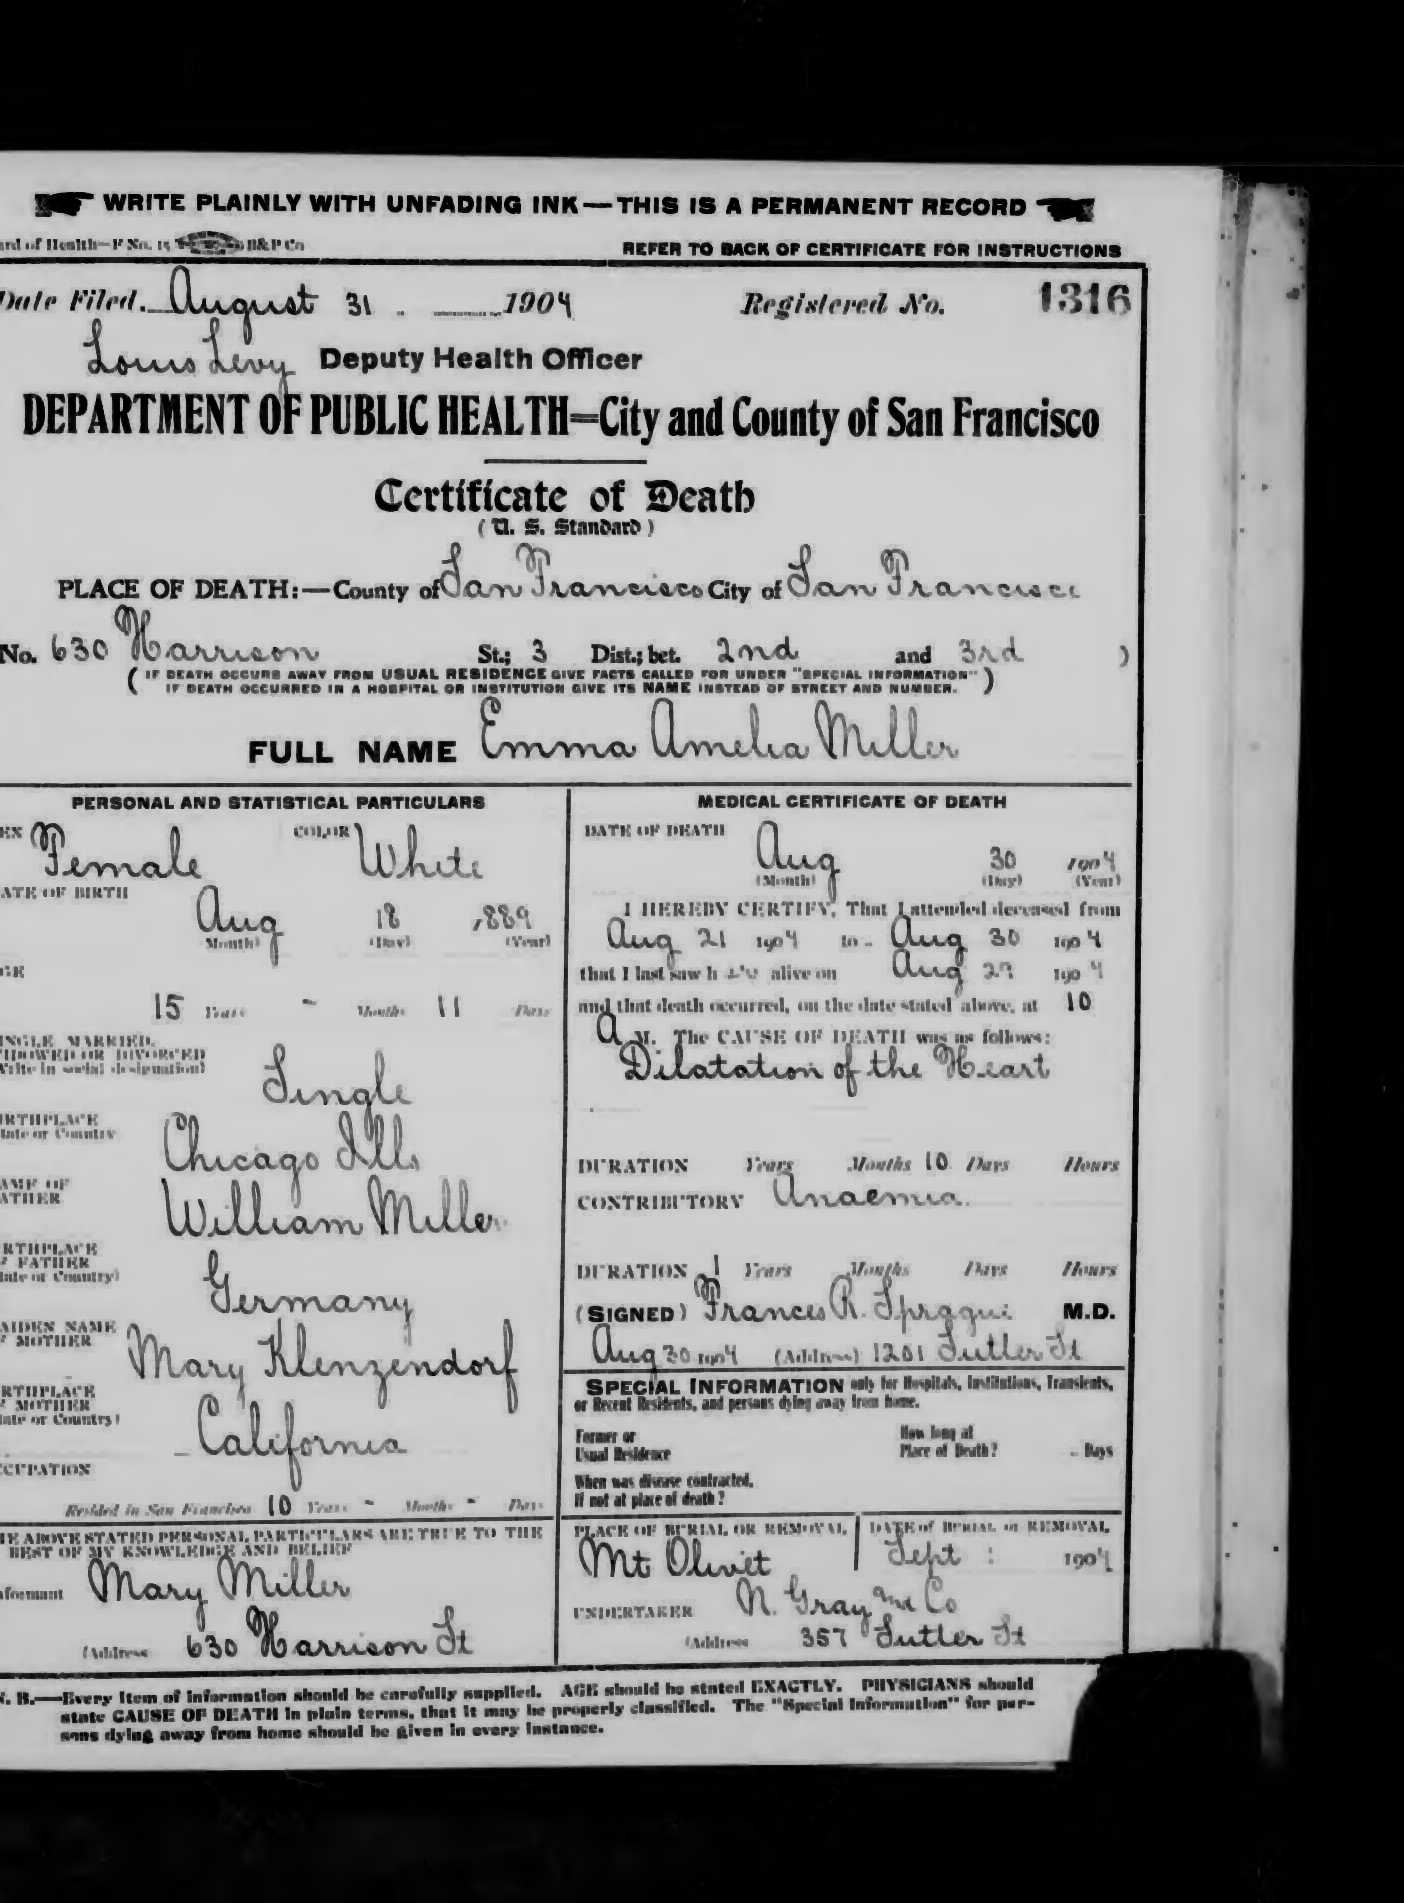 WRITE PLAINLY WITH UNFADING INK—THIS IS A PERMANENT RECORD
ard of Health—F No. 15 B&P Co
REFER TO BACK OF CERTIFICATE FOR INSTRUCTIONS
Date Filed. August 31 1904 Registered No. 1316
Louis Levy Deputy Health Officer
DEPARTMENT OF PUBLIC HEALTH=City and County of San Francisco
Certificate of Death
(U. S. Standard)
PLACE OF DEATH:—County of San Francisco City of San Francisco
No. 630 Harrison St.; 3 Dist.; bet. 2nd and 3rd )
( IF DEATH OCCURS AWAY FROM USUAL RESIDENCE GIVE FACTS CALLED FOR UNDER "SPECIAL INFORMATION" )
IF DEATH OCCURRED IN A HOSPITAL OR INSTITUTION GIVE ITS NAME INSTEAD OF STREET AND NUMBER.
FULL NAME Emma Amelia Miller
PERSONAL AND STATISTICAL PARTICULARS
EX Female COLOR White
ATE OF BIRTH
Aug 18 1889
Month) (Day) (Year)
GE
15 Years - Months 11 Days
INGLE MARRIED,
IDOWED OR DIVORCED
Write in social designation)
Single
IRTHPLACE
State or Country
Chicago Ills
AME OF
ATHER
William Miller
RTHPLACE
F FATHER
tate or Country)
Germany
AIDEN NAME
F MOTHER
Mary Klenzendorf
RTHPLACE
F MOTHER
tate or Country)
California
CCUPATION
Resided in San Francisco 10 Years - Months - Days
HE ABOVE STATED PERSONAL PARTICULARS ARE TRUE TO THE
BEST OF MY KNOWLEDGE AND BELIEF
nformant Mary Miller
(Address 630 Harrison St
MEDICAL CERTIFICATE OF DEATH
DATE OF DEATH
Aug 30 1904
(Month) (Day) (Year)
I HEREBY CERTIFY, That I attended deceased from
Aug 21 1904 to Aug 30 1904
that I last saw h er alive on Aug 29 1904
and that death occurred, on the date stated above, at 10
A M. The CAUSE OF DEATH was as follows:
Dilatation of the Heart
DURATION Years Months 10 Days Hours
CONTRIBUTORY Anaemia
DURATION 1 Years Months Days Hours
(SIGNED) Frances R. Sprague M.D.
Aug 30 1904 (Address) 1201 Sutter St
SPECIAL INFORMATION only for Hospitals, Institutions, Transients,
or Recent Residents, and persons dying away from home.
Former or
Usual Residence
How long at
Place of Death? Days
When was disease contracted,
If not at place of death?
PLACE OF BURIAL OR REMOVAL
Mt Olivet
DATE of BURIAL or REMOVAL
Sept 1904
UNDERTAKER N. Gray and Co
(Address 357 Sutter St
N. B.—Every item of information should be carefully supplied. AGE should be stated EXACTLY. PHYSICIANS should
state CAUSE OF DEATH in plain terms, that it may be properly classified. The "Special Information" for per-
sons dying away from home should be given in every instance.